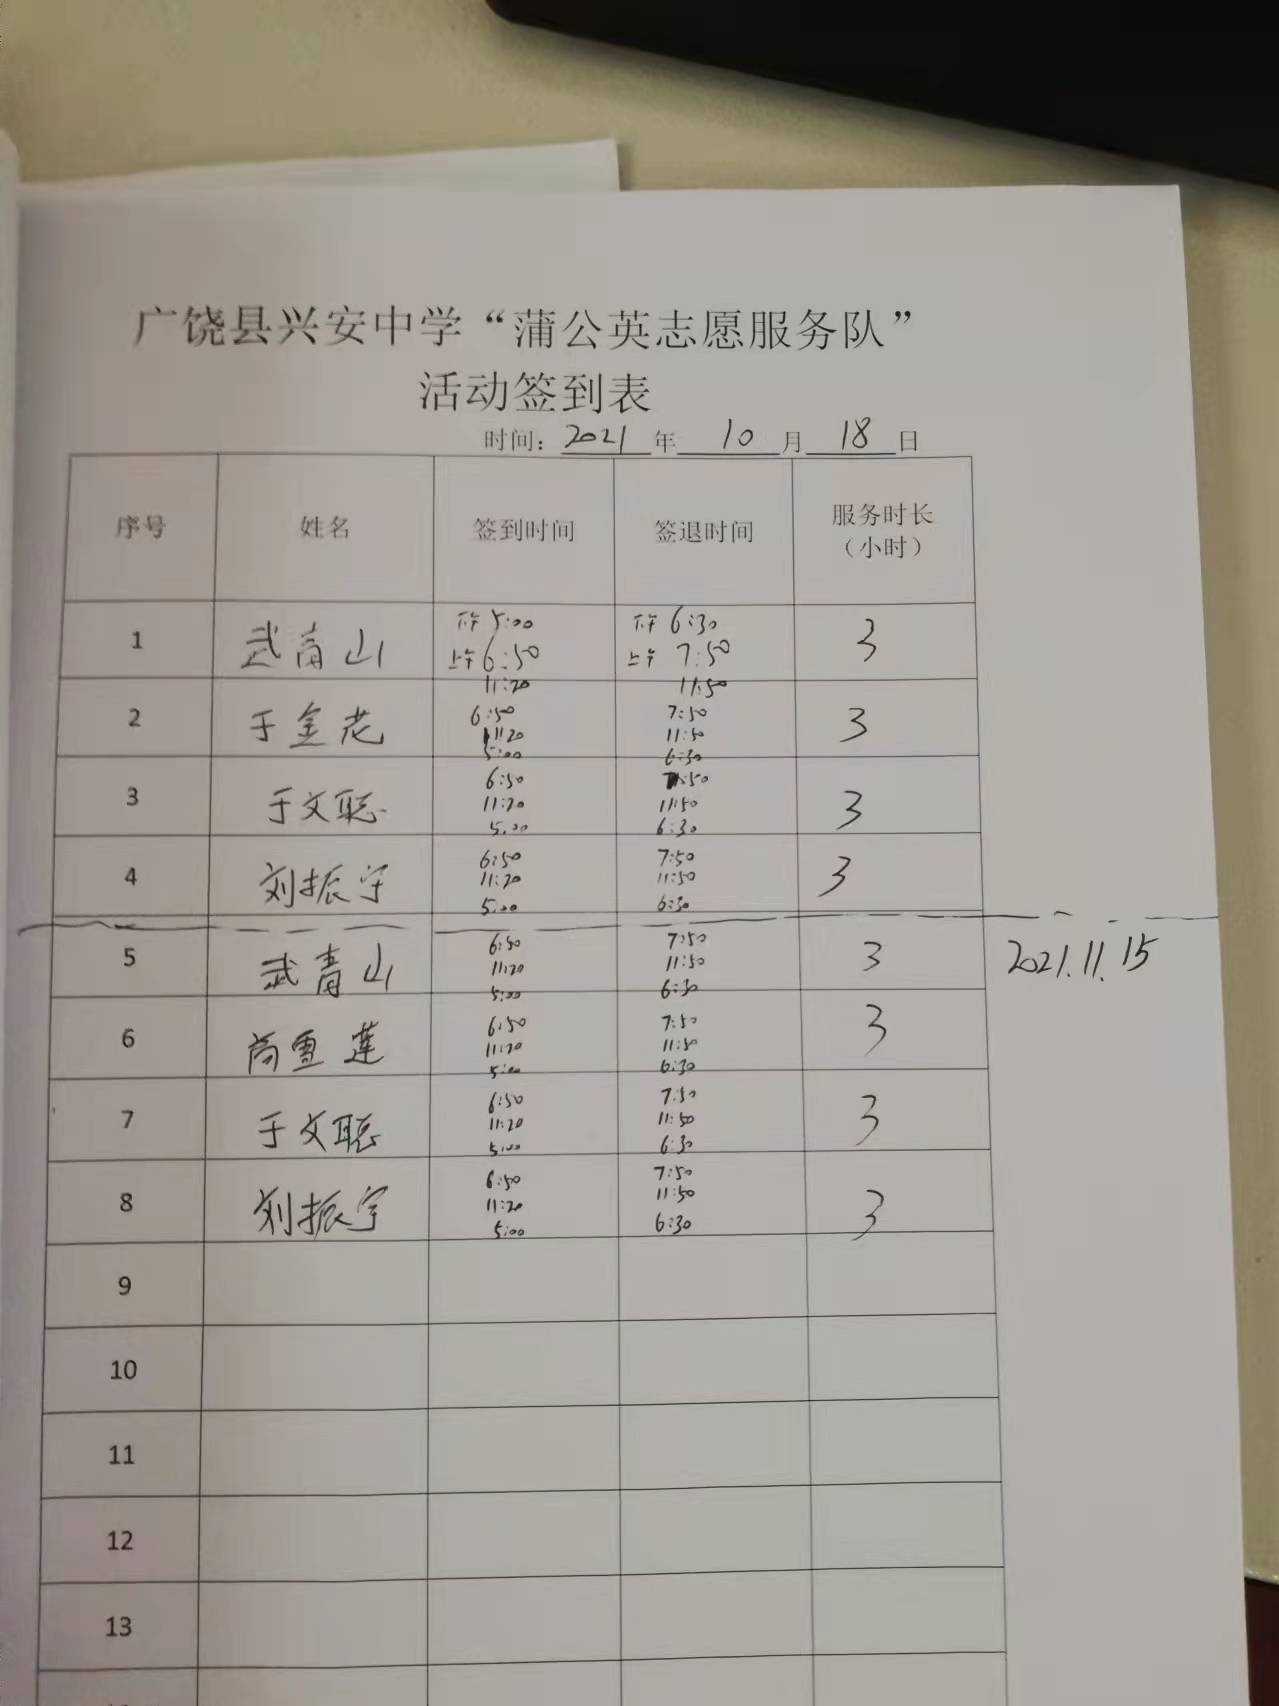 广饶县兴安中学“蒲公英志愿服务队”
活动签到表
时间：2021年10月18日
序号 姓名 签到时间 签退时间 服务时长（小时）
1 武青山 下午5:00 下午6:30 3
上午6:50 上午7:50
11:20 11:50
2 于金花 6:50 7:50 3
11:20 11:50
5:00 6:30
3 于文聪 6:50 7:50 3
11:20 11:50
5:00 6:30
4 刘振宇 6:50 7:50 3
11:20 11:50
5:00 6:30
5 武青山 6:50 7:50 3 2021.11.15
11:20 11:50
5:00 6:30
6 尚雪莲 6:50 7:50 3
11:20 11:50
5:00 6:30
7 于文聪 6:50 7:50 3
11:20 11:50
5:00 6:30
8 刘振宇 6:50 7:50 3
11:20 11:50
5:00 6:30
9
10
11
12
13